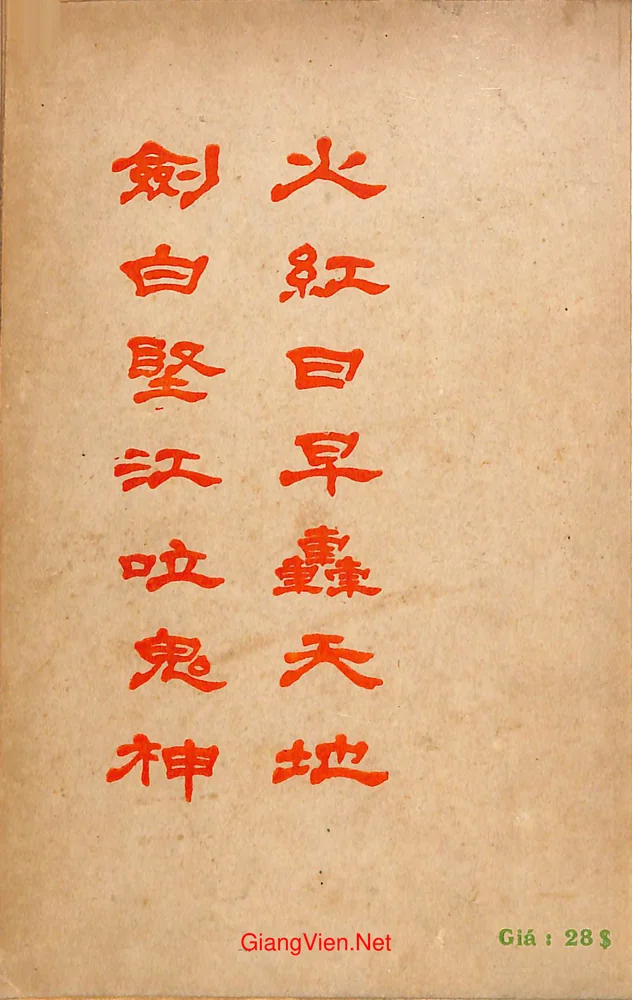 火紅日早轟天地
劍白堅江泣鬼神
GiangVien.Net
Giá : 28$